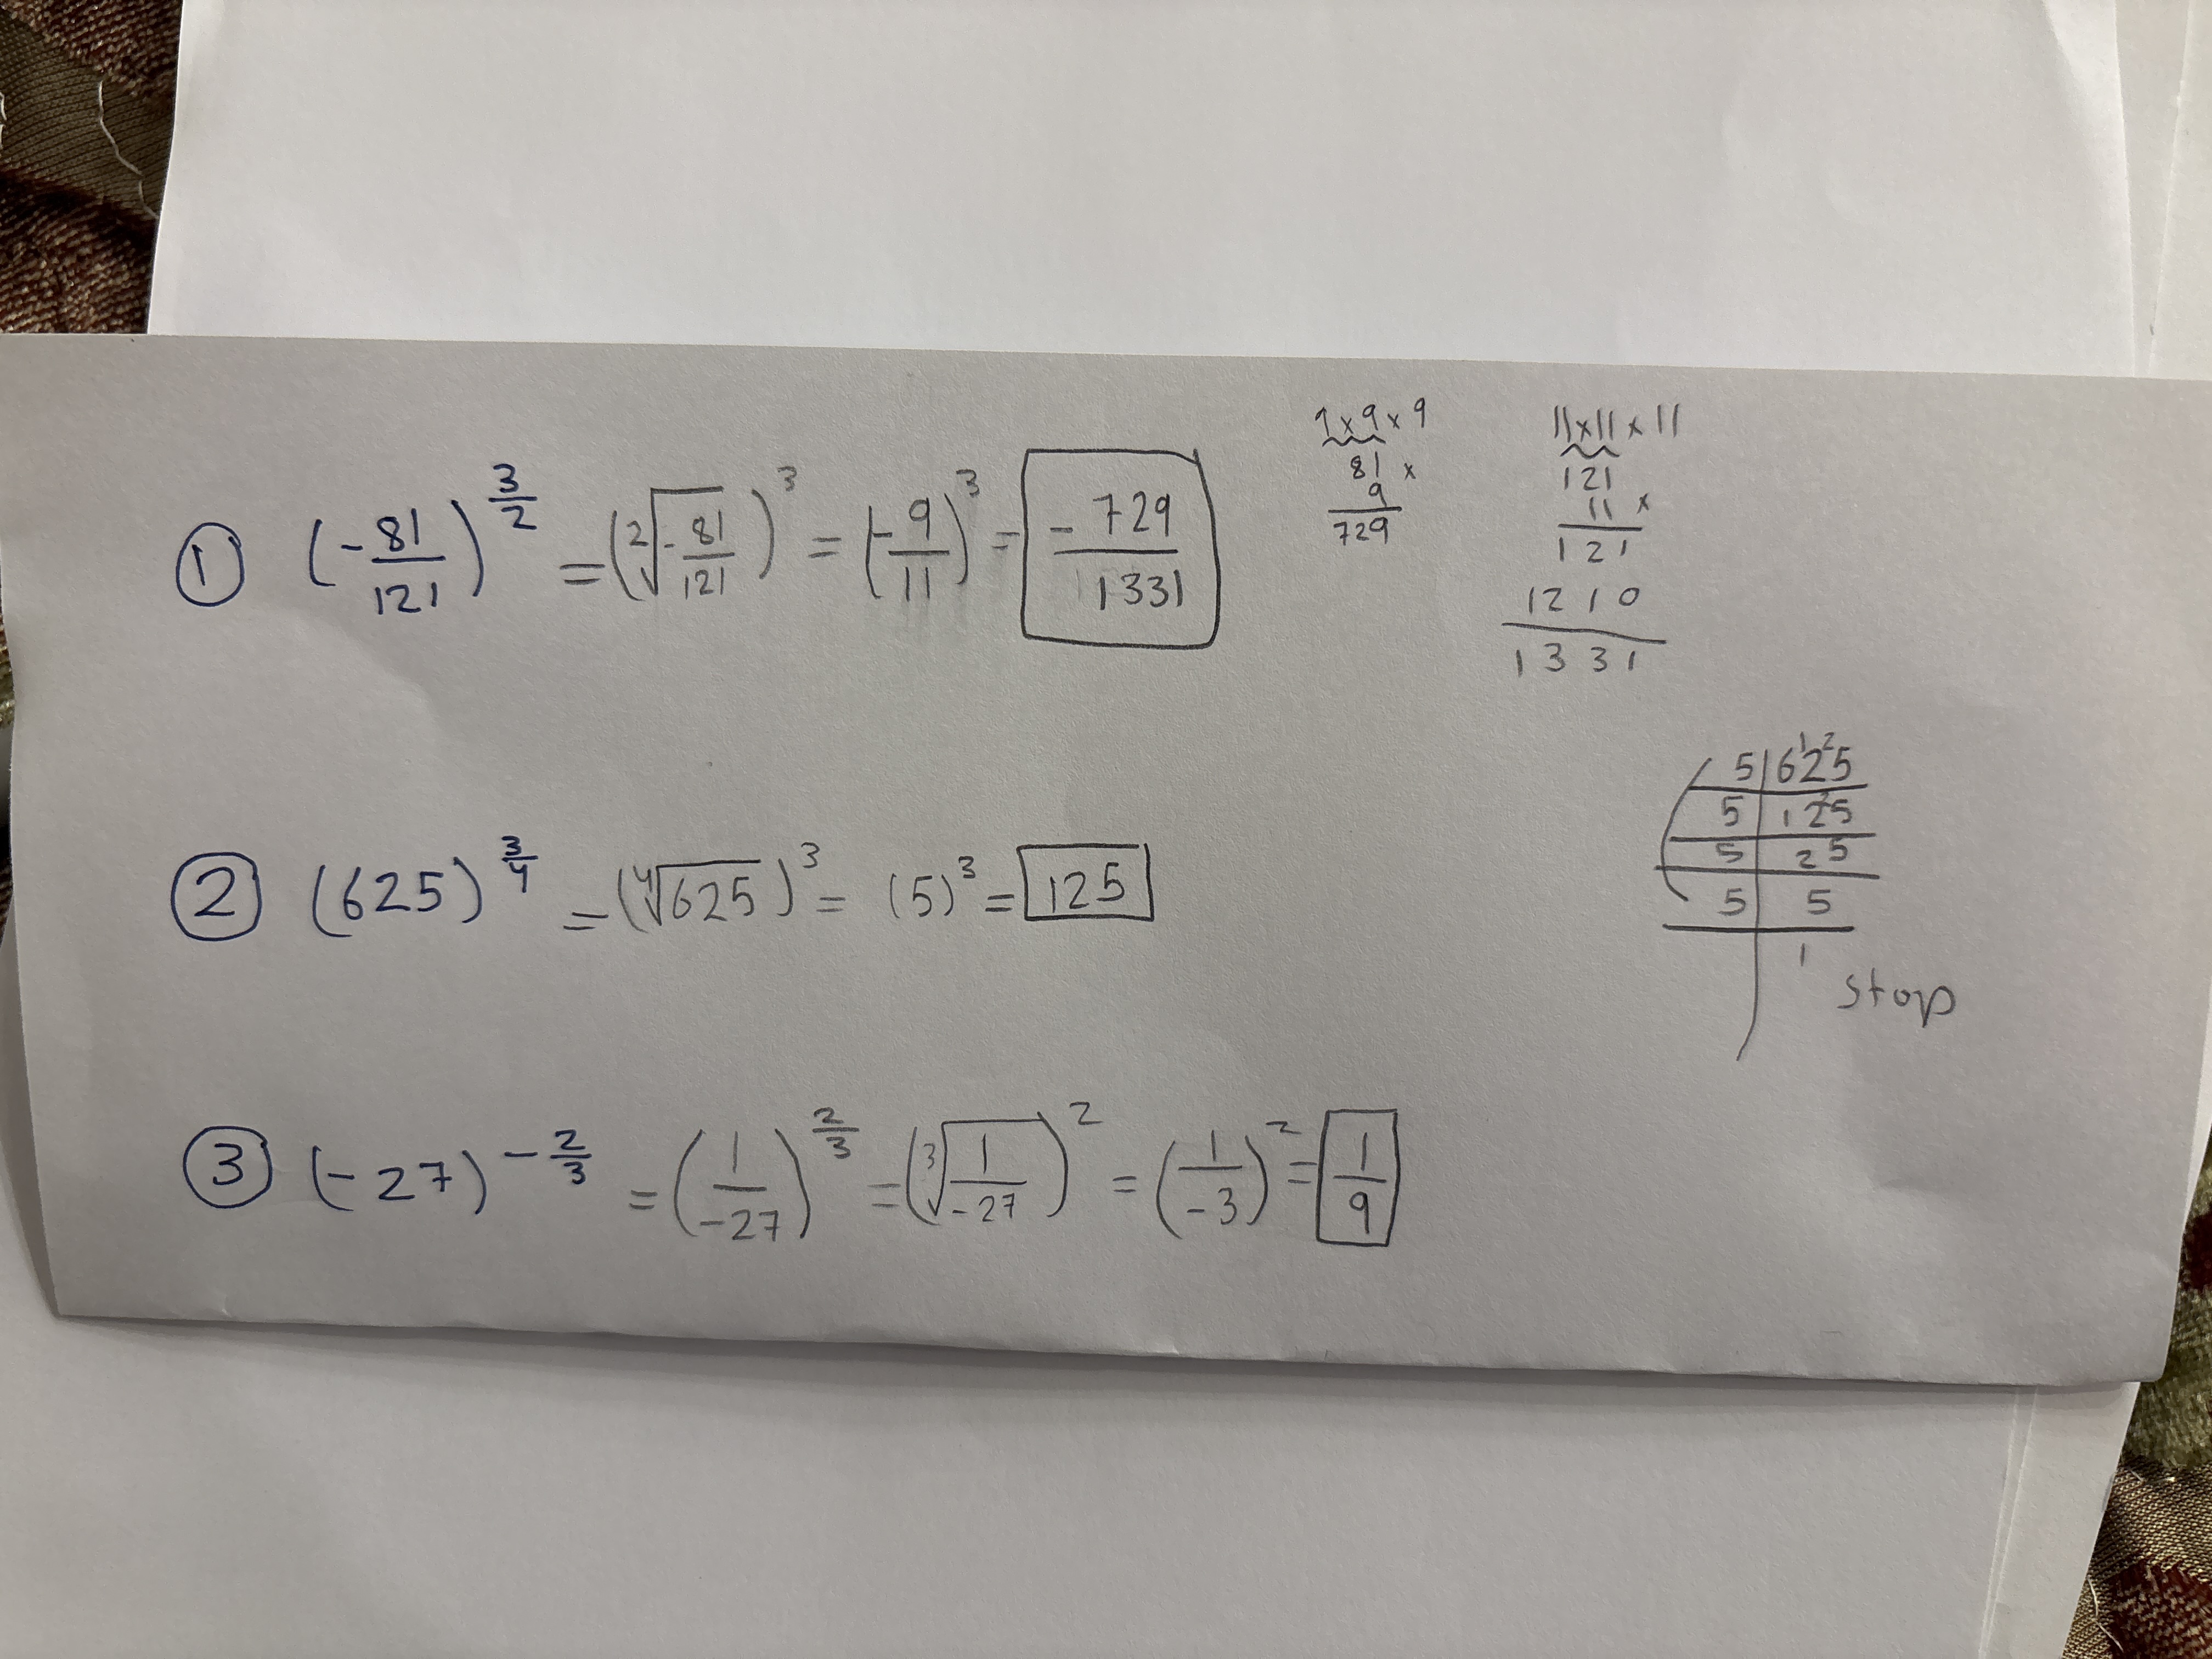 ① (-81/121)^(3/2) = (²√(-81/121))³ = (-9/11)³ = -729/1331
9 x 9 x 9
81 x
9
729
11 x 11 x 11
121
11 x
121
1210
1331
② (625)^(3/4) = (⁴√625)³ = (5)³ = 125
5 | 6¹2²5
5 | 12²5
5 | 25
5 | 5
1
stop
③ (-27)^(-2/3) = (1/-27)^(2/3) = (³√(1/-27))² = (1/-3)² = 1/9